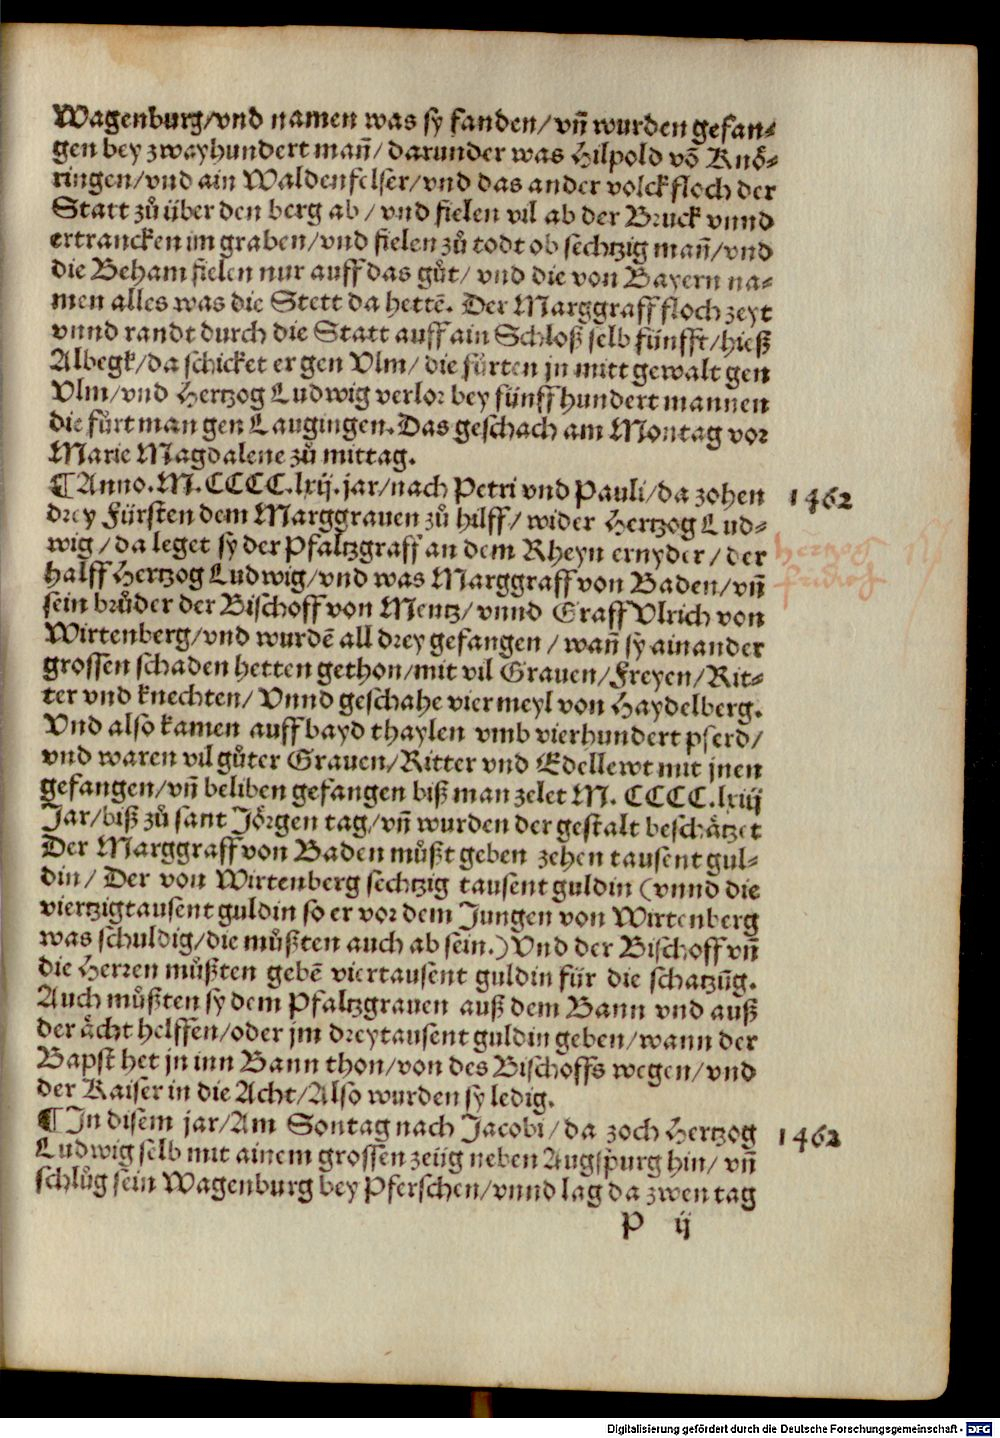 Wagenburg/vnd namen was sy fanden/ vñ wurden gefan-
gen bey zwayhundert mañ/ darunder was Hilpold võ Knö-
ringen/vnd ain Waldenfelser/vnd das ander volck floch der
Statt zů über den berg ab / vnd fielen vil ab der Bruck vnnd
ertrancken im graben/vnd fielen zů todt ob sechtzig mañ/vnd
die Beham fielen nur auff das gůt/ vnd die von Bayern na-
men alles was die Stett da hettẽ. Der Marggraff floch zeyt
vnnd randt durch die Statt auff ain Schloß selb fünfft/hieß
Albegk/da schicket er gen Vlm/ die fůrten jn mitt gewalt gen
Vlm/vnd Hertzog Ludwig verlor bey fünffhundert mannen
die fůrt man gen Laugingen. Das geschach am Montag vor
Marie Magdalene zů mittag.
¶ Anno. M. CCCC. lxij. jar/nach Petri vnd Pauli/da zohen
drey Fürsten dem Marggrauen zů hilff/ wider Hertzog Lud-
wig / da leget sy der Pfaltzgraff an dem Rheyn ernyder / der
halff Hertzog Ludwig/vnd was Marggraff von Baden/vñ
sein brůder der Bischoff von Mentz/ vnnd Graff Vlrich von
Wirtenberg/vnd wurdẽ all drey gefangen / wañ sy ainander
grossen schaden hetten gethon/mit vil Grauen/Freyen/Rit-
ter vnd knechten/ Vnnd geschahe vier meyl von Haydelberg.
Vnd also kamen auff bayd thaylen vmb vierhundert pferd/
vnd waren vil gůter Grauen/Ritter vnd Edellewt mit jnen
gefangen/vñ beliben gefangen biß man zelet M. CCCC. lxiij
Jar/biß zů sant Jörgen tag/vñ wurden der gestalt beschätzet
Der Marggraff von Baden můßt geben zehen tausent gul-
din/ Der von Wirtenberg sechtzig tausent guldin (vnnd die
viertzigtausent guldin so er vor dem Jungen von Wirtenberg
was schuldig/die můßten auch ab sein.) Vnd der Bischoff vñ
die Herren můßten gebẽ viertausent guldin für die schatzũg.
Auch můßten sy dem Pfaltzgrauen auß dem Bann vnd auß
der ächt helffen/oder jm dreytausent guldin geben/wann der
Bapst het jn inn Bann thon/von des Bischoffs wegen/vnd
der Kaiser in die Acht/Also wurden sy ledig.
¶ In disem jar/Am Sontag nach Jacobi/da zoch Hertzog
Ludwig selb mit ainem grossen zeüg neben Augspurg hin/ vñ
schlůg sein Wagenburg bey Pferschen/vnnd lag da zwen tag
P ij
1462
hertzog
fridrich
1462
Digitalisierung gefördert durch die Deutsche Forschungsgemeinschaft - DFG